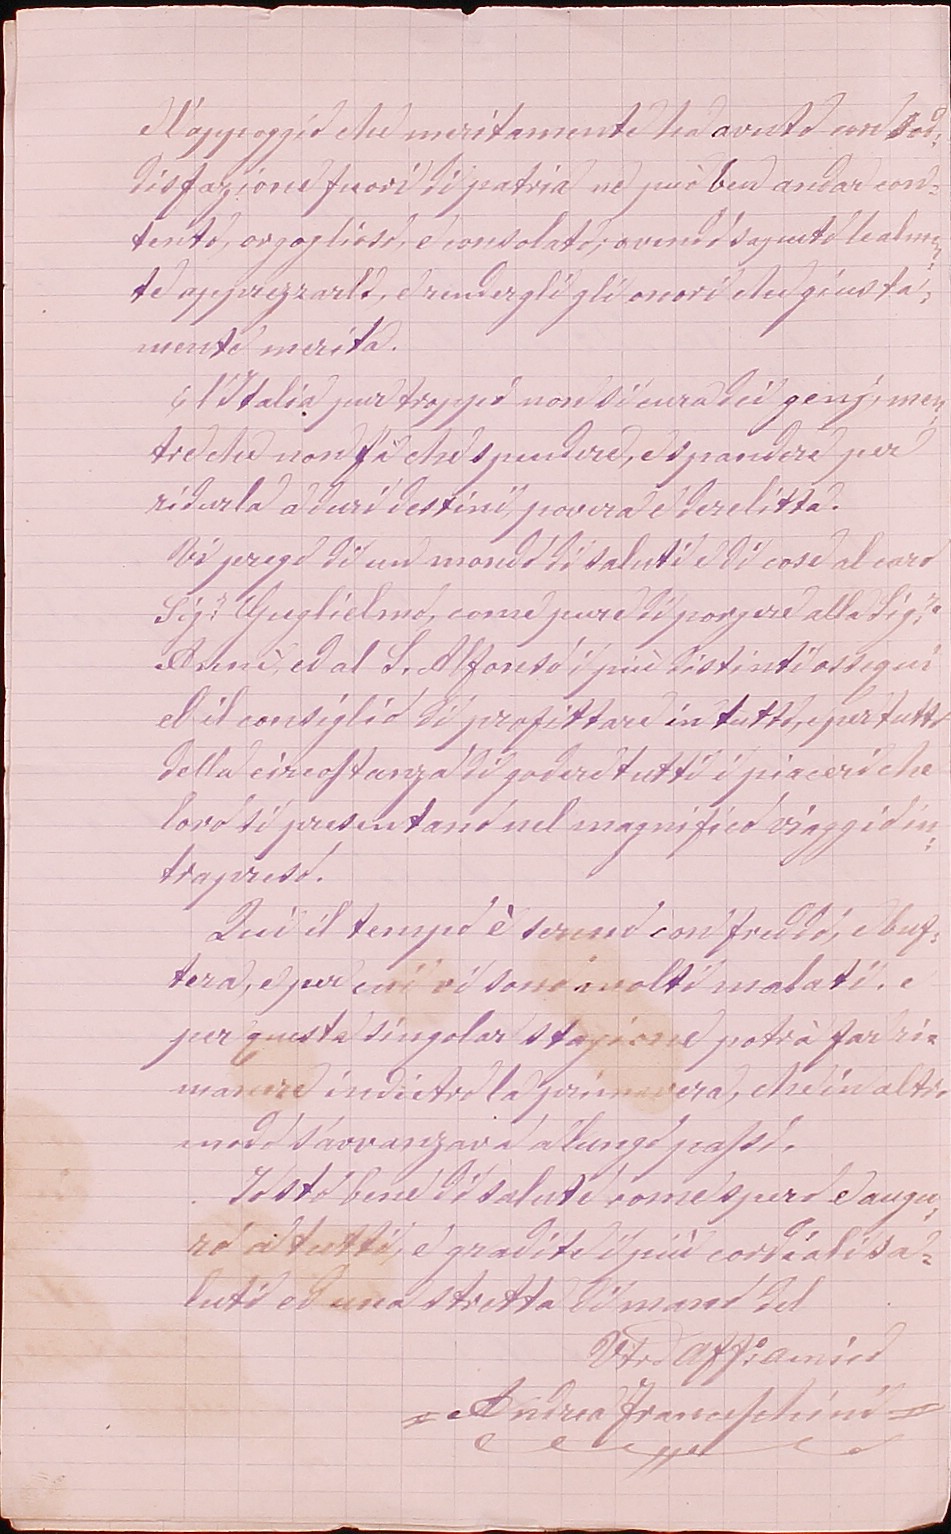 Dell'appoggio che meritamente ha avuto con sod:
disfazione fuori di patria ne può ben andar con=
tento, orgoglioso, e consolato, avendo saputo lealmen:
te apprezzarlo, e rendergli gli onori che giusta:
mente merita.
E l'Italia pur troppo non si cura dei genj, men:
tre che non fà che spendere, e spandere per
ridurla a duri destini, povera e derelitta.
Vi prego di un mondo di saluti e di cose al caro
Sig.r Guglielmo, come pure di porgere alla Sig.ra
Annè, ed al S. Alfonso i più distinti ossequi
ed il consiglio di profittare in tutto, e per tutto
della circostanza di godere tutti i piaceri che
loro si presentano nel magnifico viaggio in:
trapreso.
Quì il tempo è sereno con freddo, e buf:
fera, e per cui vi sono molti malati, e
per questa singolar stagione potrà far ri=
manere indietro la primavera, che in altro
modo s'avvanzava a lungo passo.
Io stò bene di salute come spero e augu:
ro a tutti, e gradite i più cordiali sa=
luti ed una stretta di mano del
Vtro Affo amico
= Andrea Franceschini =